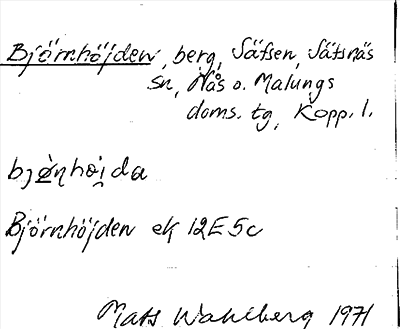 Björnhöjden, berg, Säfsen, Säfsnäs
sn, Nås o. Malungs
doms. tg, Kopp. l.
bjø̀ṇhøi̯da
Björnhöjden ek 12E5c
Mats Wahlberg 1971